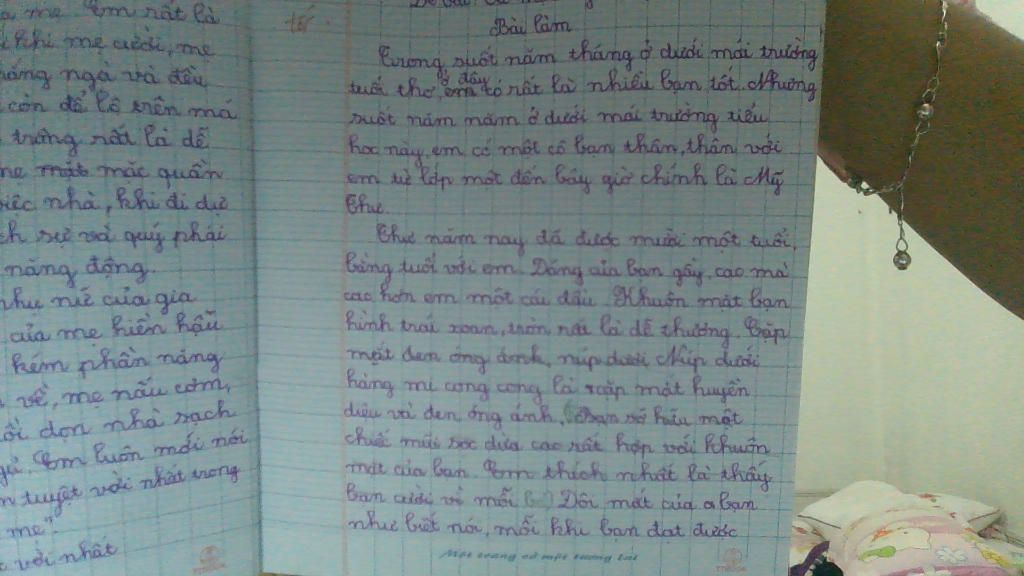 a mẹ. Em rất là
khi mẹ cười, mẹ
trắng ngà và đều
còn để lộ trên má
trông rất là dễ
mẹ mặt mặc quần
việc nhà, khi đi dự
lịch sự và quý phái
năng động.
phụ nữ của gia
của mẹ hiền hậu
kém phần năng
về, mẹ nấu cơm,
rồi dọn nhà sạch
Em luôn mới nói
tuyệt vời nhất trong
mẹ"
vời nhất
Bài làm
Trong suốt năm tháng ở dưới mái trường
tuổi thơ, ở đây em có rất là nhiều bạn tốt. Nhưng
suốt năm năm ở dưới mái trường tiểu
học này, em có một cô bạn thân, thân với
em từ lớp một đến bây giờ chính là Mỹ
Thư.
Thư năm nay đã được mười một tuổi,
bằng tuổi với em. Dáng của bạn gầy, cao mà
cao hơn em một cái đầu. Khuôn mặt bạn
hình trái xoan, tròn rất là dễ thương. Cặp
mắt đen óng ánh, núp dưới. Núp dưới
hàng mi cong cong là cặp mắt huyền
diệu và đen óng ánh. Bạn sở hữu một
chiếc mũi sọc dừa cao rất hợp với khuôn
mặt của bạn. Em thích nhất là thấy
bạn cười vì mỗi Đôi mắt của bạn
như biết nói, mỗi khi bạn đạt được
Mỗi trang vở một tương lai